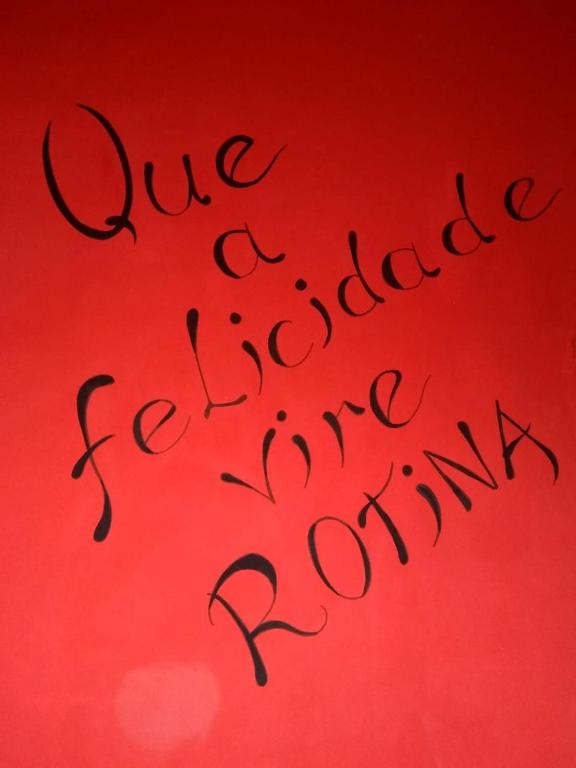 Que
a
feLicidade
vire
ROTiNA